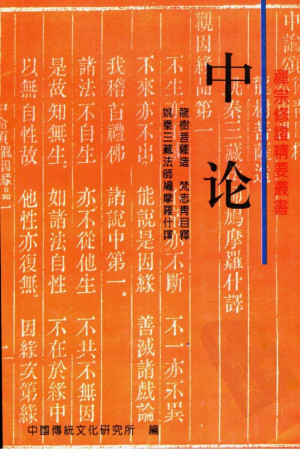 禪宗修證精要叢書
中论
龍樹菩薩造 梵志青目釋
姚秦三藏法師鳩摩羅什譯
龍樹菩薩造
姚秦三藏 鳩摩羅什譯
觀因緣品第一
不生亦 不斷 不一亦不異
不來亦不出 能說是因緣 善滅諸戲論
我稽首禮佛 諸說中第一。
諸法不自生 亦不從他生 不共不無因
是故知無生。 如諸法自性 不在於緣中
以無自性故 他性亦復無。 因緣次第緣
二
中国傳統文化研究所 編